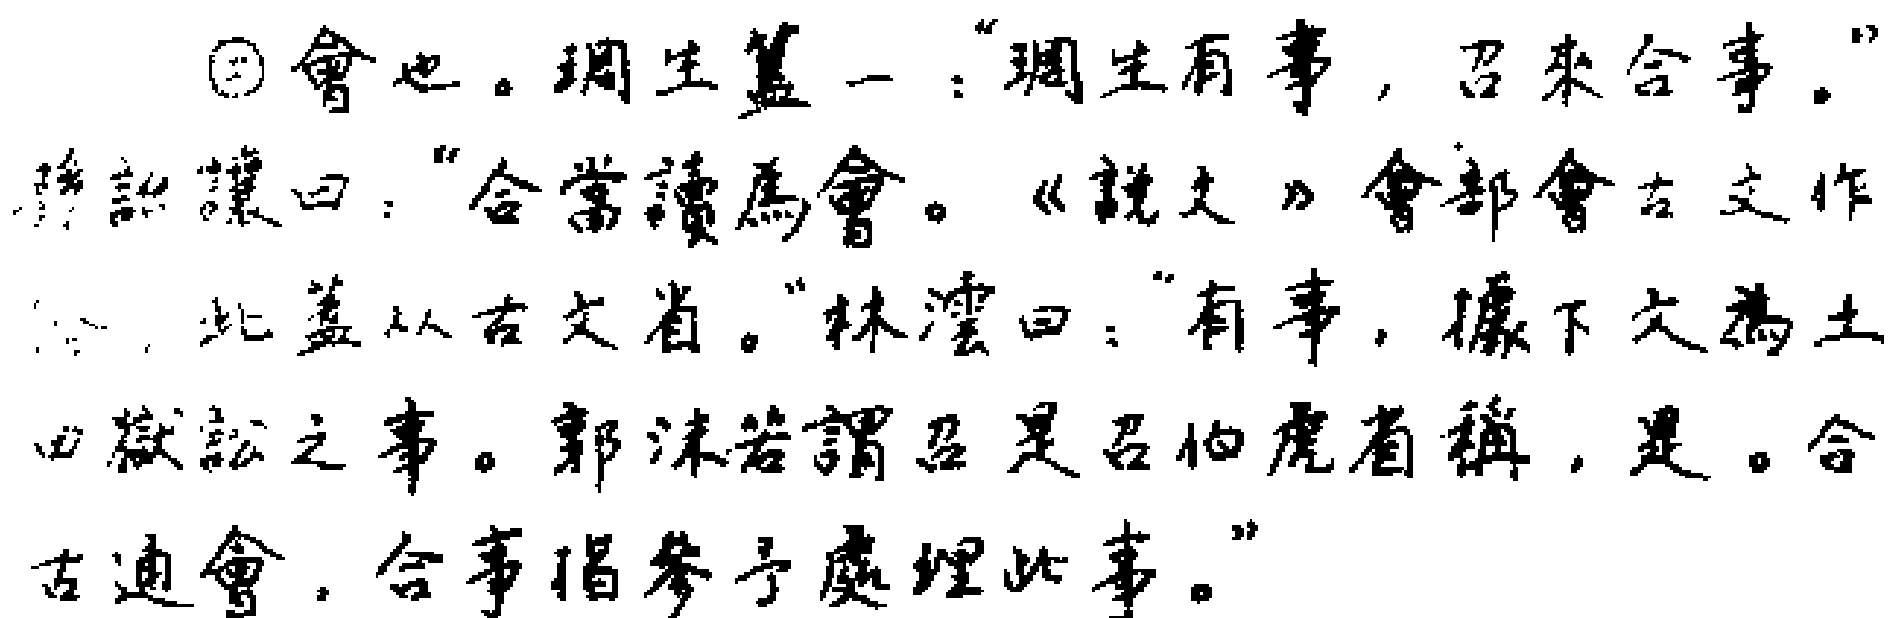 ㊂會也。琱生簋一：“琱生有事，召來合事。”
孫詒讓曰：“合當讀爲會。《説文》會部會古文作
㣛，此蓋从古文省。”林澐曰：“有事，據下文爲土
田獄訟之事。郭沫若謂召是召伯虎省稱，是。合
古通會，合事指參予處理此事。”